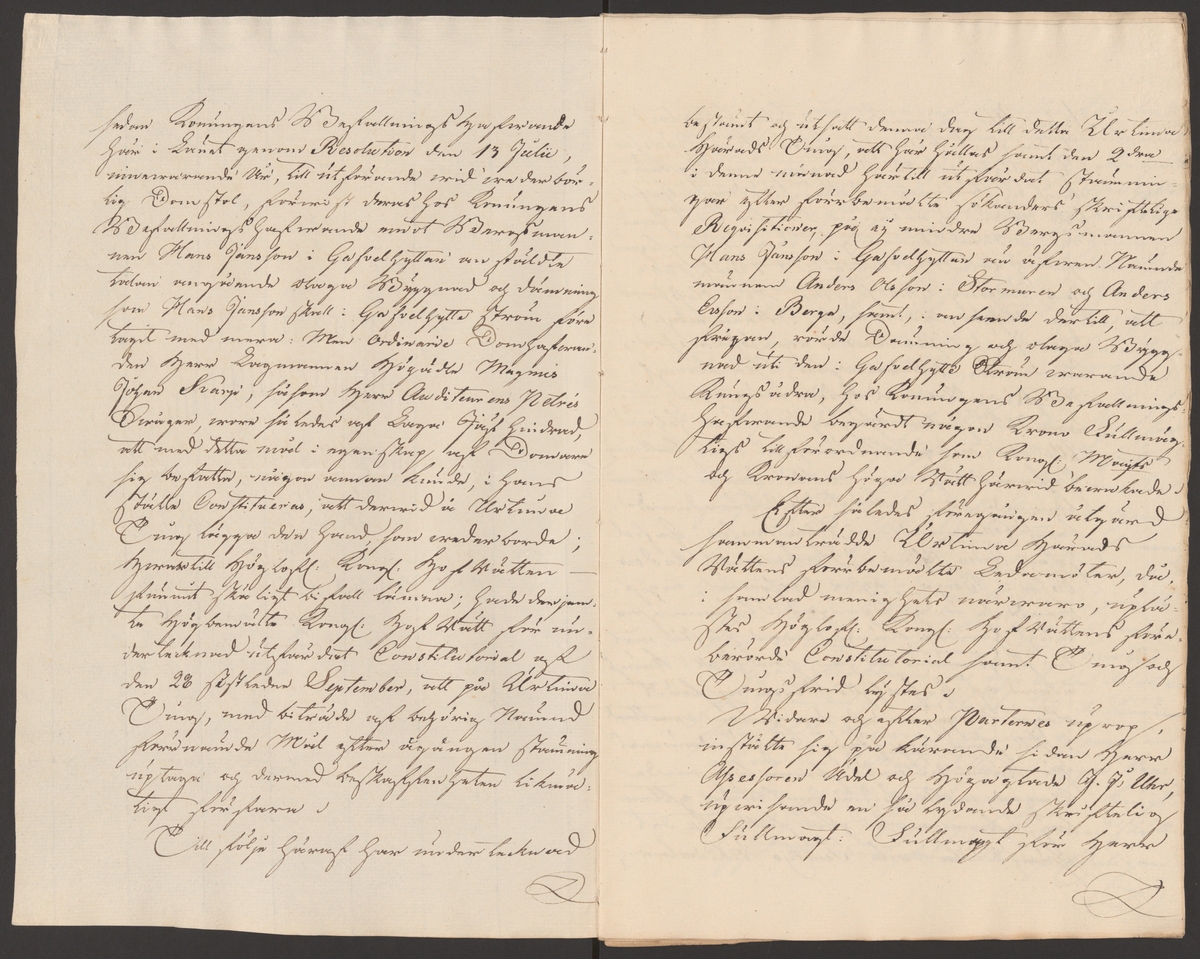 sedan Konungens Befallningshafwande
här i Länet genom Resolution den 13 Julii,
innewarande År, till utförande wid wederbör-
lig Domstol, förwist deras hos Konungens
Befallningshafwande emot Bergsman-
nen Hans Jansson i Gafvelhyttan anstäldte
talan angående olaga Byggnad och dämning
som Hans Jansson skall i Gafvelhytte Ström före
tagit med mera: Men Ordinarie Domhafwan-
den Herr Lagmannen Högädle Magnus
Johan såsom Herr Auditeurens Petrés
Swåger, wore således af Laga Jäf hindrad,
att med detta mål i egenskap af Domare
sig befatta, någon annan kunde, i hans
ställe Constitueras, att derwid å Urtima
Ting lägga den hand, som wederborde;
Hwartill Höglofl: Kongl: Hof Rätten
funnit skäligt bifall lämna; hade derjem-
te Högbemälte Kongl: Hof Rätt för un-
dertecknad utfärdat Constitutorial af
den 28 sistledne September, att på Urtima
Ting, med biträde af behörig Nämnd
förenämnde Mål efter ågången stämning
uptaga och dermed beskaffenheten likmä-
tigt förfara.
Till följe häraf har undertecknad
bestämt och utsatt denna dag till detta Urtima
Härads Ting, att här hållas samt den 2dra
i denne månad härtill utfärdat stämnin-
gar efter förrbemälte sökanders skriftelige
Requisitioner, på ej mindre Bergsmannen
Hans Jansson i Gafvelhyttan än äfwen Nämnde
männen Anders Olsson i Stormuren och Anders
Ersson i Berga, samt, i anseende dertill, att
frågan, rörde Dämning och olaga Bygg-
nad uti den i Gafvelhytte Ström warande
Kungsådra, hos Konungens Befallnings-
hafwande begärdt någon Krono Fullmäg-
tigs tillförordnande som Kongl: Maijts
och Kronans höga Rätt härwid bewakade.
Efter således föregången åtgärd
sammanträdde Urtima Härads
Rättens förrbemälte Ledamöter, då
i samlad menighets närwaro, uplä-
stes Höglofl: Kongl: Hof Rättens före-
berörde Constitutorial samt Ting och
Tingsfrid lystes.
Widare och efter Parternes uprop,
instälte sig på kärande sidan Herr
Assessoren Ädel och Högagtade J. J. Uhr,
upwisande en så lydande skriftelig
Fullmagt: Fullmagt för Herr